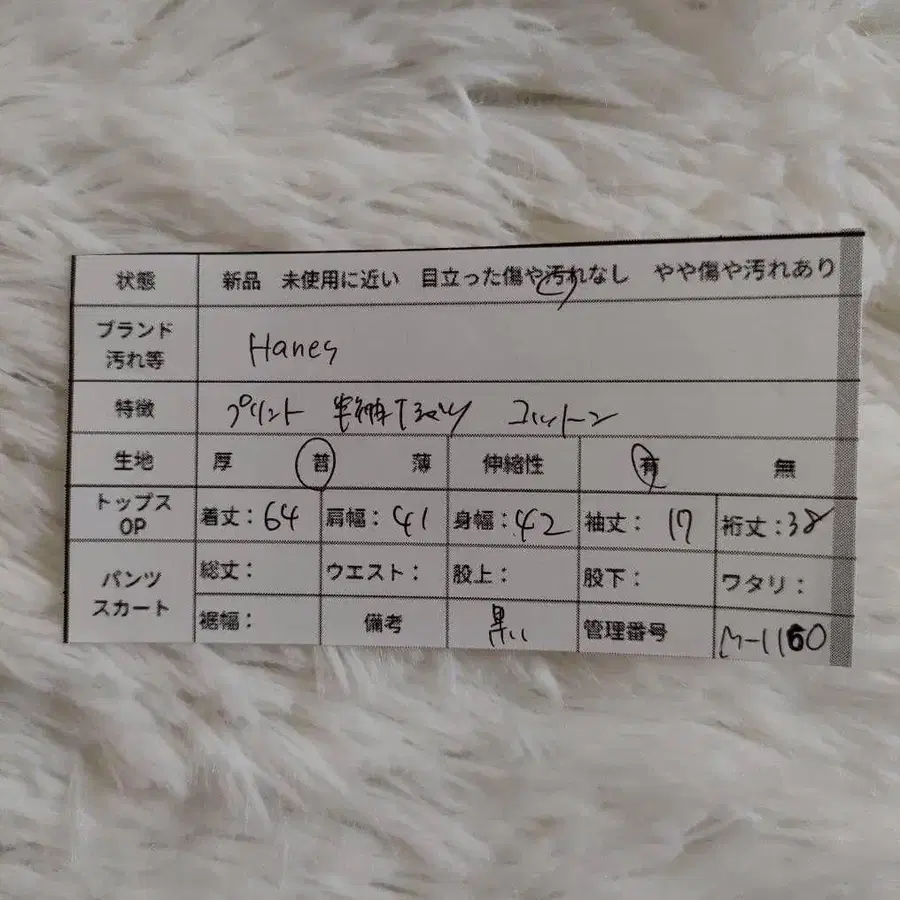 状態 新品 未使用に近い 目立った傷や汚れなし やや傷や汚れあり
ブランド
汚れ等 Hanes
特徴 プリント 半袖Tシャツ コットン
生地 厚 普 薄 伸縮性 有 無
トップス
OP 着丈:64 肩幅:41 身幅:42 袖丈:17 裄丈:38
パンツ
スカート 総丈: ウエスト: 股上: 股下: ワタリ:
裾幅: 備考 黒い 管理番号 M-1160